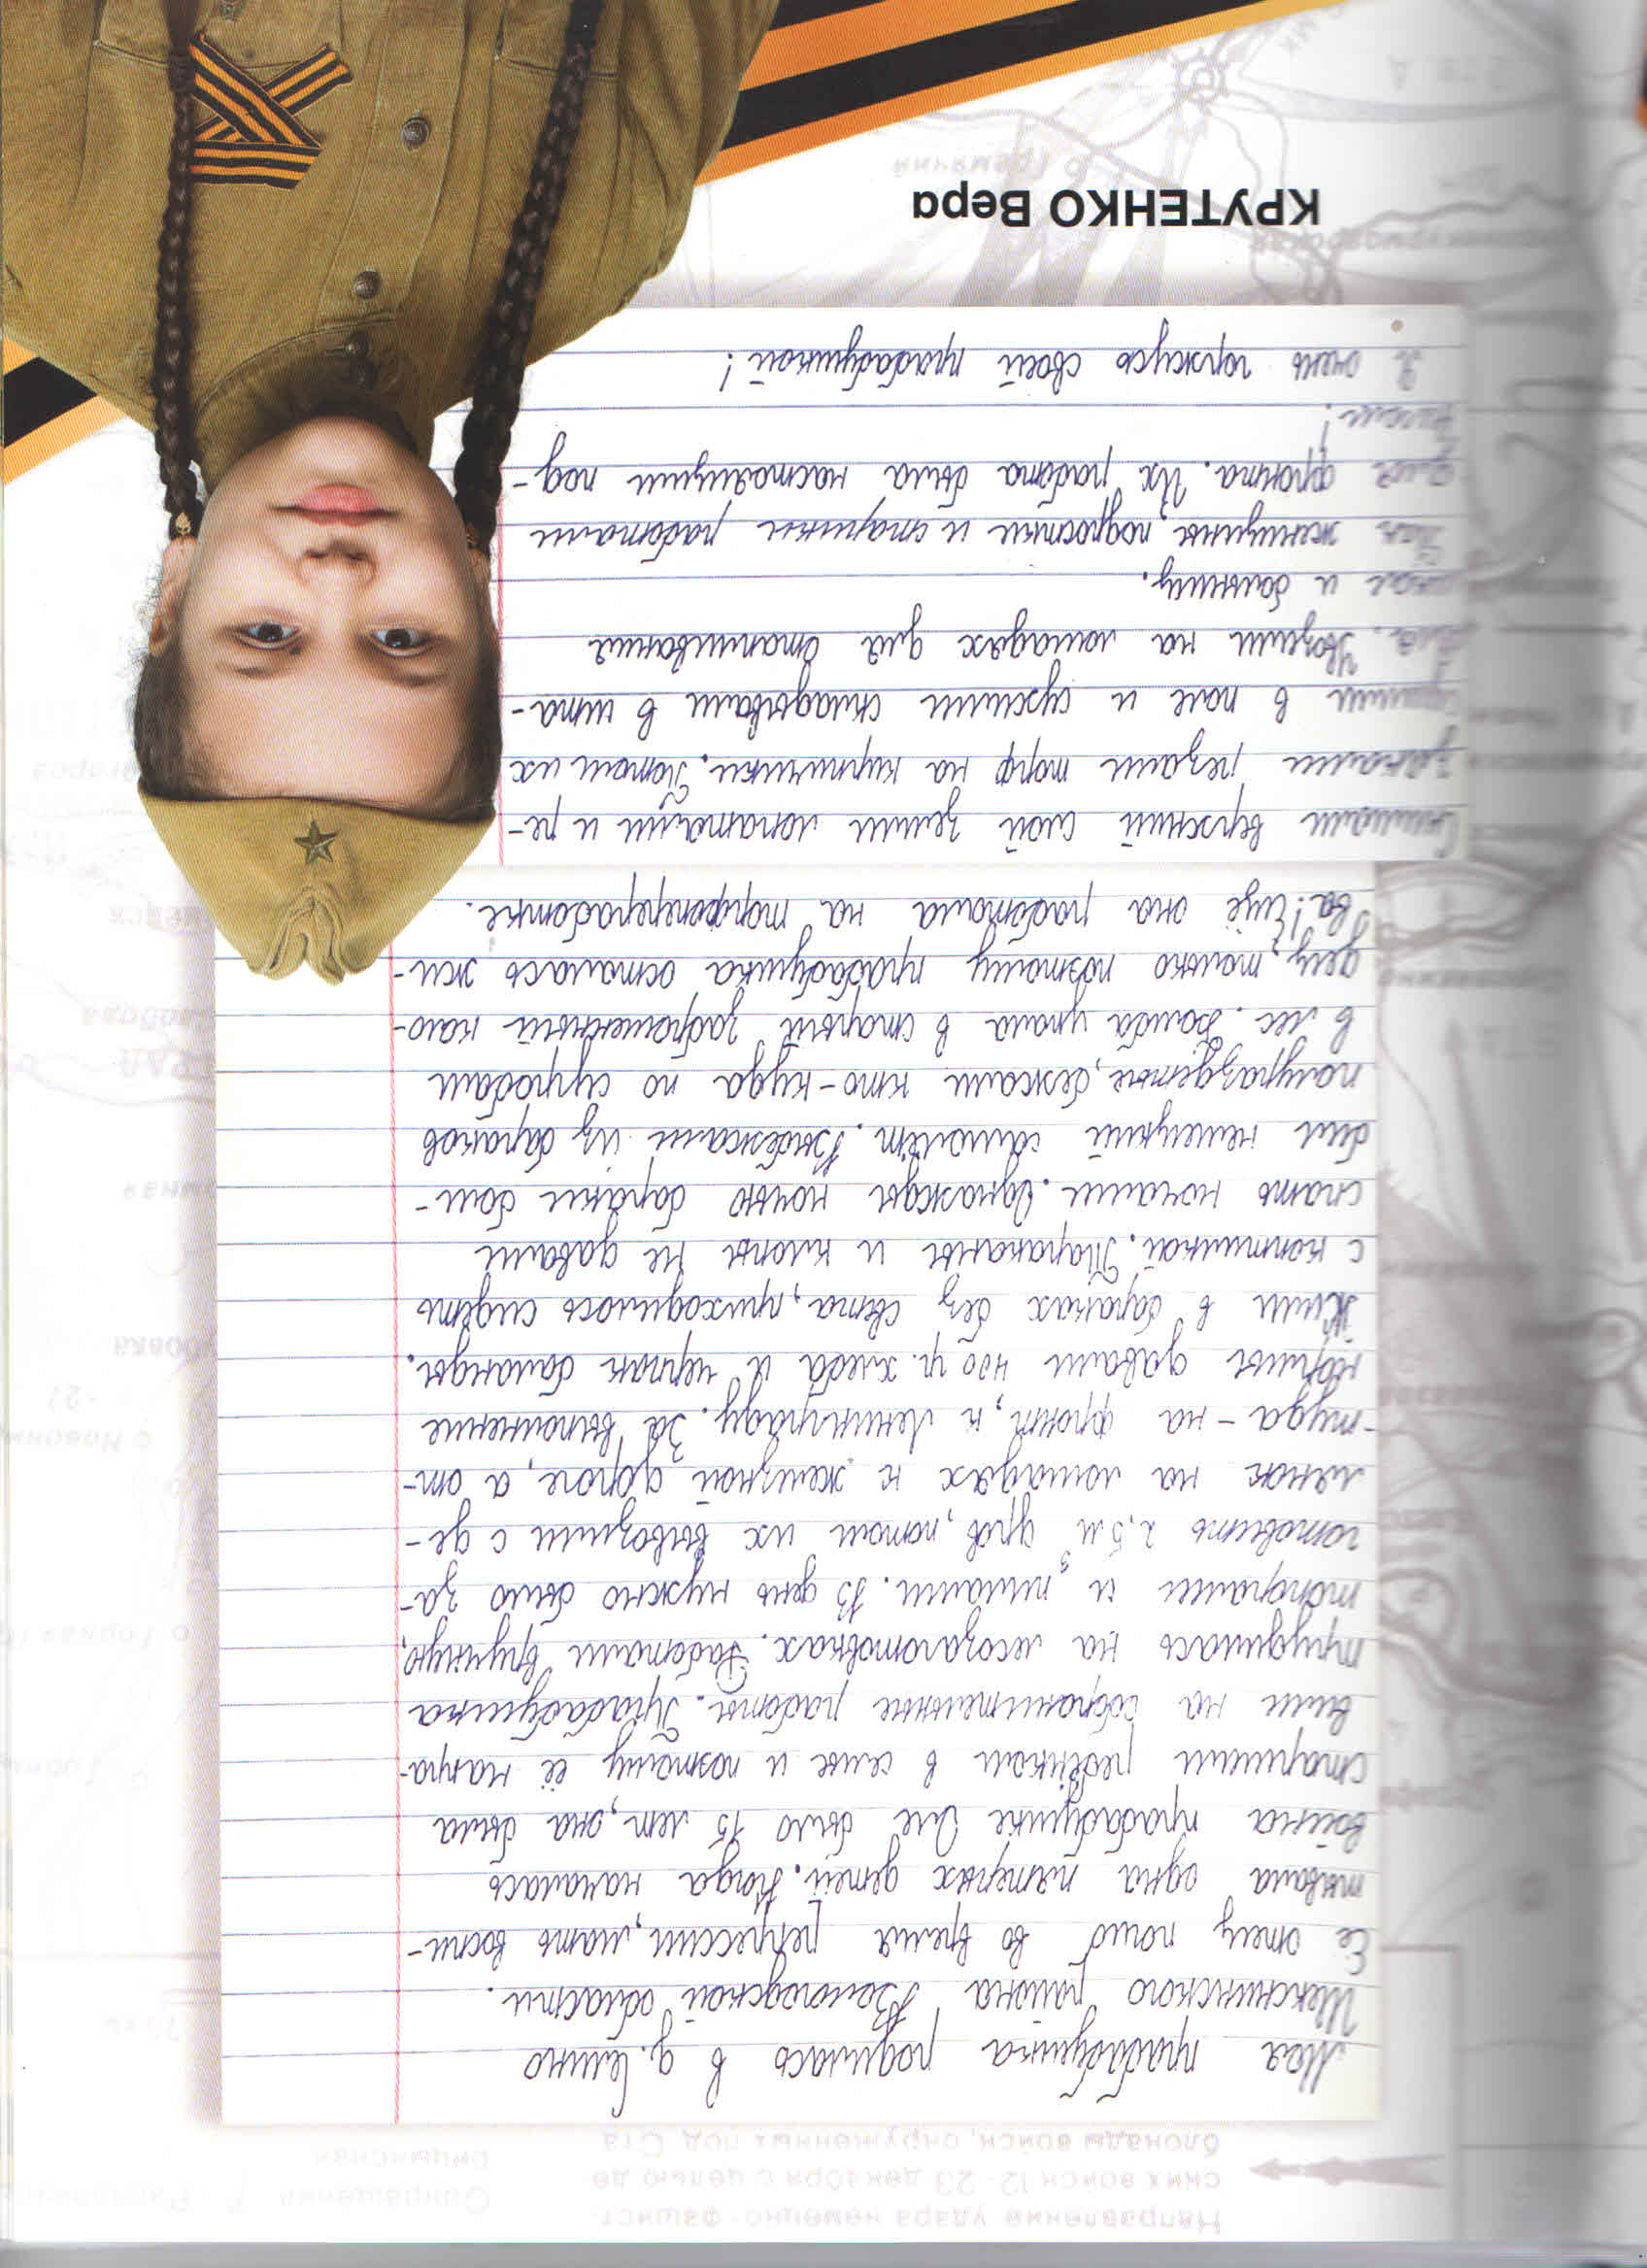 Направление удара немецко-фашист
ских войск 12-23 декабря с целью де
блокады войск, окруженных под Ста
Сокращения
Моя прабабушка родилась в д. Селино
Шекснинского района Вологодской области.
Её отец погиб во время репрессии, мать воспи-
тывала одна пятерых детей. Когда началась
война прабабушке Оле было 15 лет, она была
старшим ребёнком в семье и поэтому её напра-
вили на оборонительные работы. Прабабушка
трудилась на лесозаготовках. Работали вручную,
топорами и пилами. В день нужно было за-
готовить 2,5 м³ дров, потом их вывозили с де-
лянок на лошадях к железной дороге, а от-
туда - на фронт, к Ленинграду. За выполнение
нормы давали 400 гр. хлеба и черпак баланды.
Жили в бараках без света, приходилось сидеть
с коптилкой. Тараканы и клопы не давали
спать ночами. Однажды ночью бараки бом-
бил немецкий самолёт. Выбежали из бараков
полураздетые, бежали кто-куда по сугробам
в лес. Бомба упала в старый заброшенный коло-
дец, только поэтому прабабушка осталась жи-
ва! Ещё она работала на торфопереработке.
Снимали верхний слой земли лопатами и ре-
заками резали торф на кирпичики. Потом их
сушили в поле и сухими складывали в шта-
беля. Увозили на лошадях для отапливания
школ и больниц.
Так женщины, подростки и старики работали
для фронта. Их работа была настоящим под-
вигом!
Я очень горжусь своей прабабушкой!
КРУТЕНКО Вера
Гремячий